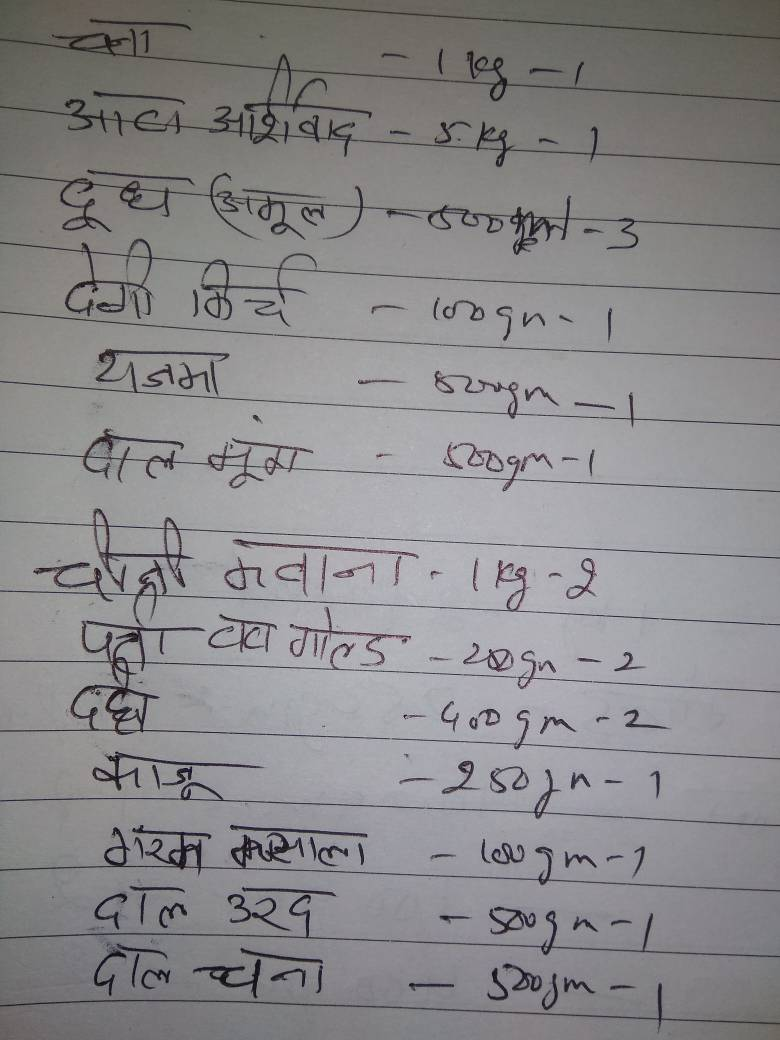 - 1 kg - 1
आटा आर्शीवाद - 5 kg - 1
दूध (अमूल) - 500 - 3
देगी मिर्च - 100 gm - 1
राजमा - 500 gm - 1
दाल मूंग - 500 gm - 1
चीनी मवाना - 1 kg - 2
पत्ती गोल्ड - 200 gm - 2
- 400 gm - 2
काजू - 250 gm - 1
गरम मसाला - 100 gm - 1
दाल उरद - 500 gm - 1
दाल चना - 500 gm - 1